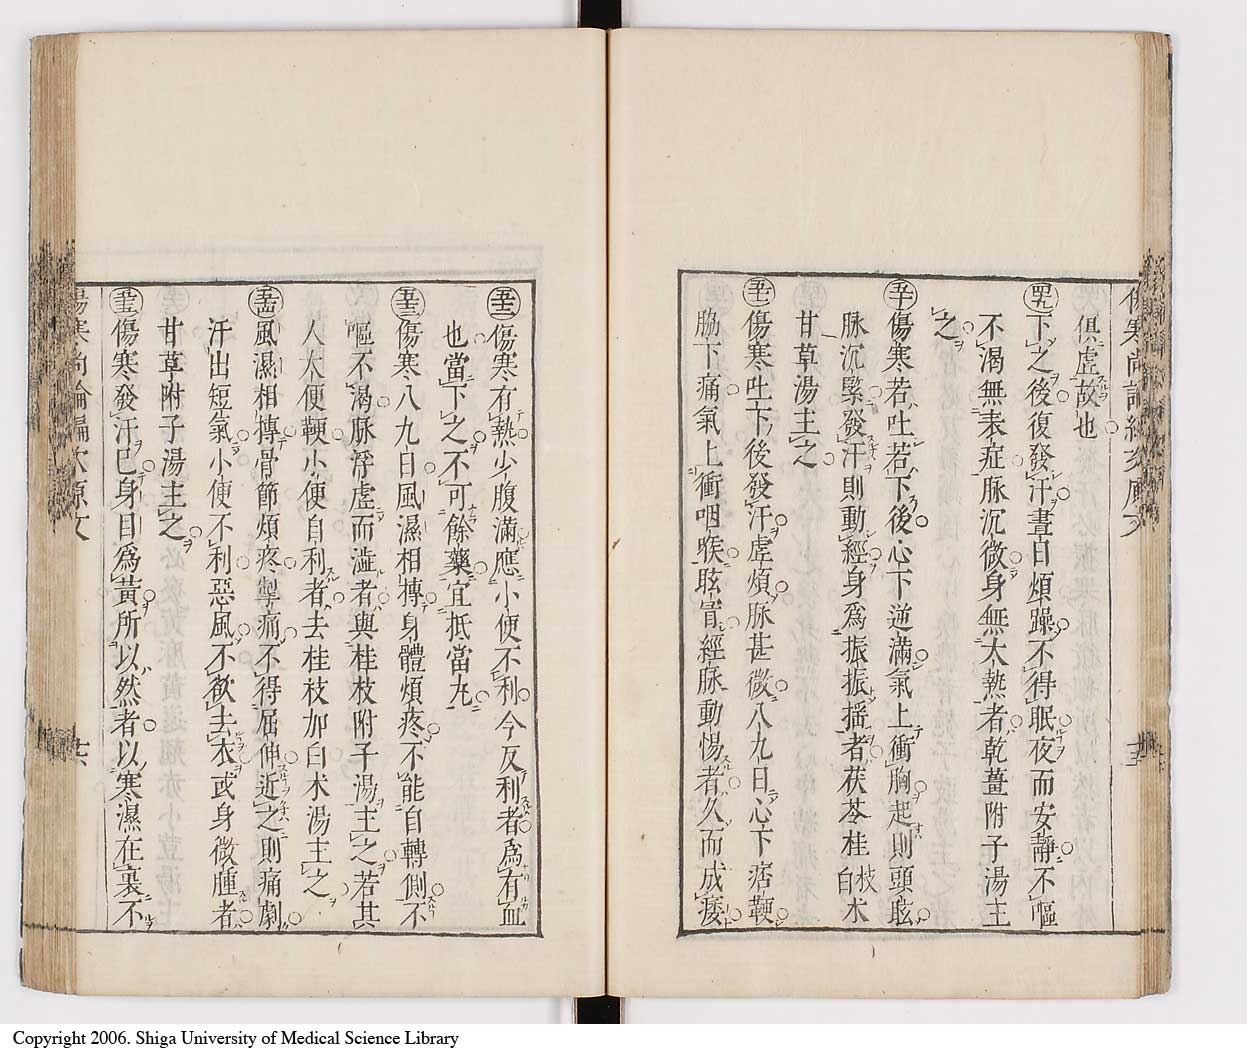 俱虛故也
㊾下之後復發汗晝日煩躁不得眠夜而安靜不嘔
不渴無表症脉沉微身無大熱者乾薑附子湯主
之
㊿傷寒若吐若下後心下逆滿氣上衝胸起則頭眩
脉沉緊發汗則動經身爲振振搖者茯苓桂枝白术
甘草湯主之
五十一傷寒吐下後發汗虛煩脉甚微八九日心下痞鞕
脇下痛氣上衝咽喉眩冒經脉動惕者久而成痿
五十二傷寒有熱少腹滿應小便不利今反利者爲有血
也當下之不可餘藥宜抵當丸
五十三傷寒八九日風濕相搏身體煩疼不能自轉側不
嘔不渴脉浮虛而澁者與桂枝附子湯主之若其
人大便鞕小便自利者去桂枝加白术湯主之
五十四風濕相搏骨節煩疼掣痛不得屈伸近之則痛劇
汗出短氣小便不利惡風不欲去衣或身微腫者
甘草附子湯主之
五十五傷寒發汗已身目爲黃所以然者以寒濕在裏不
Copyright 2006. Shiga University of Medical Science Library